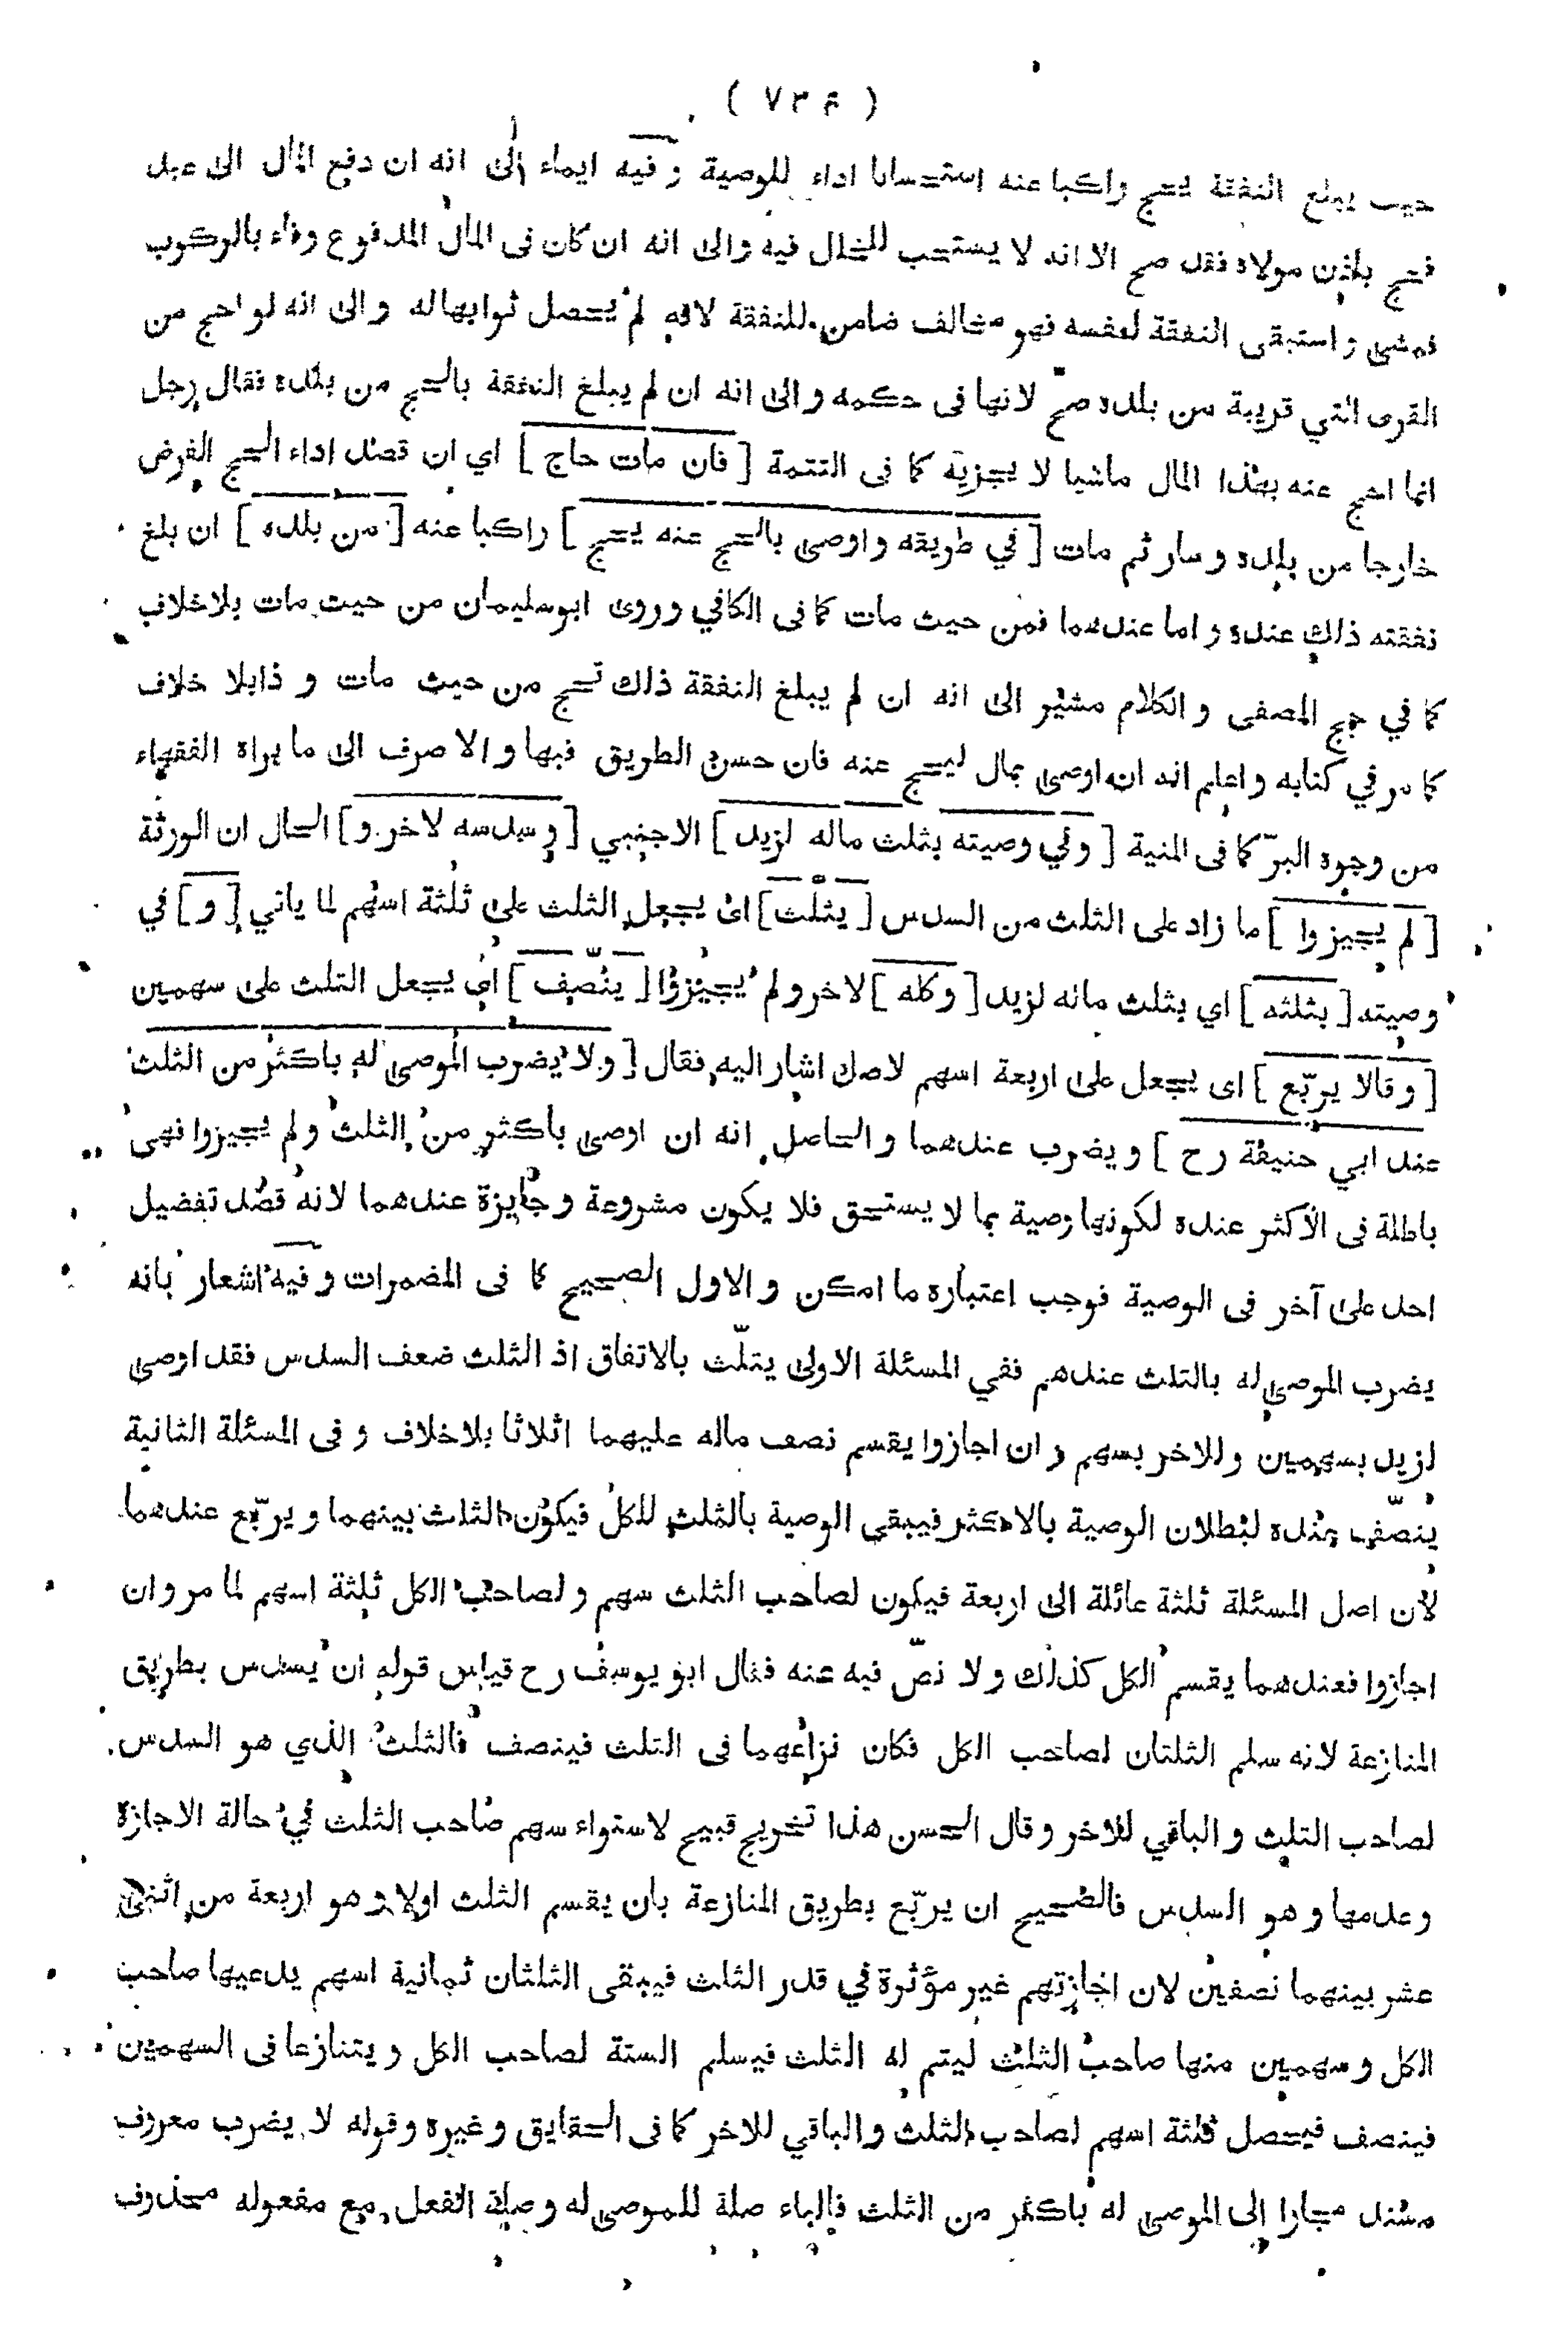 ( ٧٣۴ )
حيث يبلغ النفقة يحج راكبا عنه استحسانا اداء للوصية و فيه ايماء الى انه ان دفع المال الى عبد
فحج باذن مولاه فقد صح الا انه لا يستحب للخلل فيه والى انه ان كان فى المال المدفوع وفاء بالركوب
فمشى و استبقى النفقة لنفسه فهو مخالف ضامن للنفقة لانه لم يحصل ثوابها له والى انه لو احج من
القرى التي قريبة من بلده صح لانها فى حكمه والى انه ان لم يبلغ النفقة بالحج من بلده فقال رجل
انما احج عنه بهذا المال ماشيا لا يجزيه كما فى التتمة [ فان مات حاج ] اي ان قصد اداء الحج الفرض
خارجا من بلده وسار ثم مات [ في طريقه واوصى بالحج عنه يحج ] راكبا عنه [ من بلده ] ان بلغ
نفقته ذلك عنده و اما عندهما فمن حيث مات كما فى الكافي وروى ابوسليمان من حيث مات بلاخلاف
كما في حج المصفى و الكلام مشير الى انه ان لم يبلغ النفقة ذلك تحج من حيث مات و ذا بلا خلاف
كما مر في كتابه واعلم انه ان اوصى بمال ليحج عنه فان حسن الطريق فبها والا صرف الى ما يراه الفقهاء
من وجوه البرّ كما فى المنية [ وفي وصيته بثلث ماله لزيد ] الاجنبي [ وسدسه لاخر و ] الحال ان الورثة
[ لم يجيزوا ] ما زاد على الثلث من السدس [ يثلث ] اى يجعل الثلث على ثلثة اسهم لما ياتي [ و ] في
وصيته [ بثلثه ] اي بثلث ماله لزيد [ وكله ] لاخر ولم يجيزوا [ ينصّف ] اي يجعل الثلث على سهمين
[ وقالا يربّع ] اى يجعل على اربعة اسهم لاصل اشار اليه فقال [ ولا يضرب الموصى له باكثر من الثلث
عند ابي حنيفة رح ] ويضرب عندهما و الحاصل انه ان اوصى بأكثر من الثلث ولم يجيزوا فهى
باطلة فى الأكثر عنده لكونها وصية بما لا يستحق فلا يكون مشروعة وجايزة عندهما لانه قصد تفضيل
احد على آخر فى الوصية فوجب اعتباره ما امكن والاول الصحيح كما فى المضمرات وفيه اشعار بانه
يضرب الموصى له بالثلث عندهم ففي المسئلة الاولى يثلّث بالاتفاق اذ الثلث ضعف السدس فقد اوصى
لزيد بسهمين وللاخر بسهم و ان اجازوا يقسم نصف ماله عليهما اثلاثا بلاخلاف و فى المسئلة الثانية
ينصّف عنده لبطلان الوصية بالاكثر فيبقى الوصية بالثلث للكل فيكون الثلث بينهما ويربّع عندهما
لأن اصل المسئلة ثلثة عائلة الى اربعة فيكون لصاحب الثلث سهم ولصاحب الكل ثلثة اسهم لما مر وان
اجازوا فعندهما يقسم الكل كذلك ولا نصّ فيه عنه فقال ابو يوسف رح قياس قوله ان يسدس بطريق
المنازعة لانه سلم الثلثان لصاحب الكل فكان نزاعهما فى الثلث فينصف فالثلث الذي هو السدس
لصاحب الثلث والباقي للاخر وقال الحسن هذا تخريج قبيح لاستواء سهم صاحب الثلث في حالة الاجازة
وعدمها وهو السدس فالصحيح ان يربّع بطريق المنازعة بان يقسم الثلث اولا وهو اربعة من اثنى
عشر بينهما نصفين لان اجازتهم غير مؤثرة في قدر الثلث فيبقى الثلثان ثمانية اسهم يدعيها صاحب
الكل وسهمين منها صاحب الثلث ليتم له الثلث فيسلم الستة لصاحب الكل ويتنازعا فى السهمين
فينصف فيحصل ثلثة اسهم لصاحب الثلث والباقي للاخر كما فى الحقايق وغيره وقوله لا يضرب معروف
مسند مجازا الى الموصى له باكثر من الثلث فالباء صلة للموصى له وصلة الفعل مع مفعوله محذوف